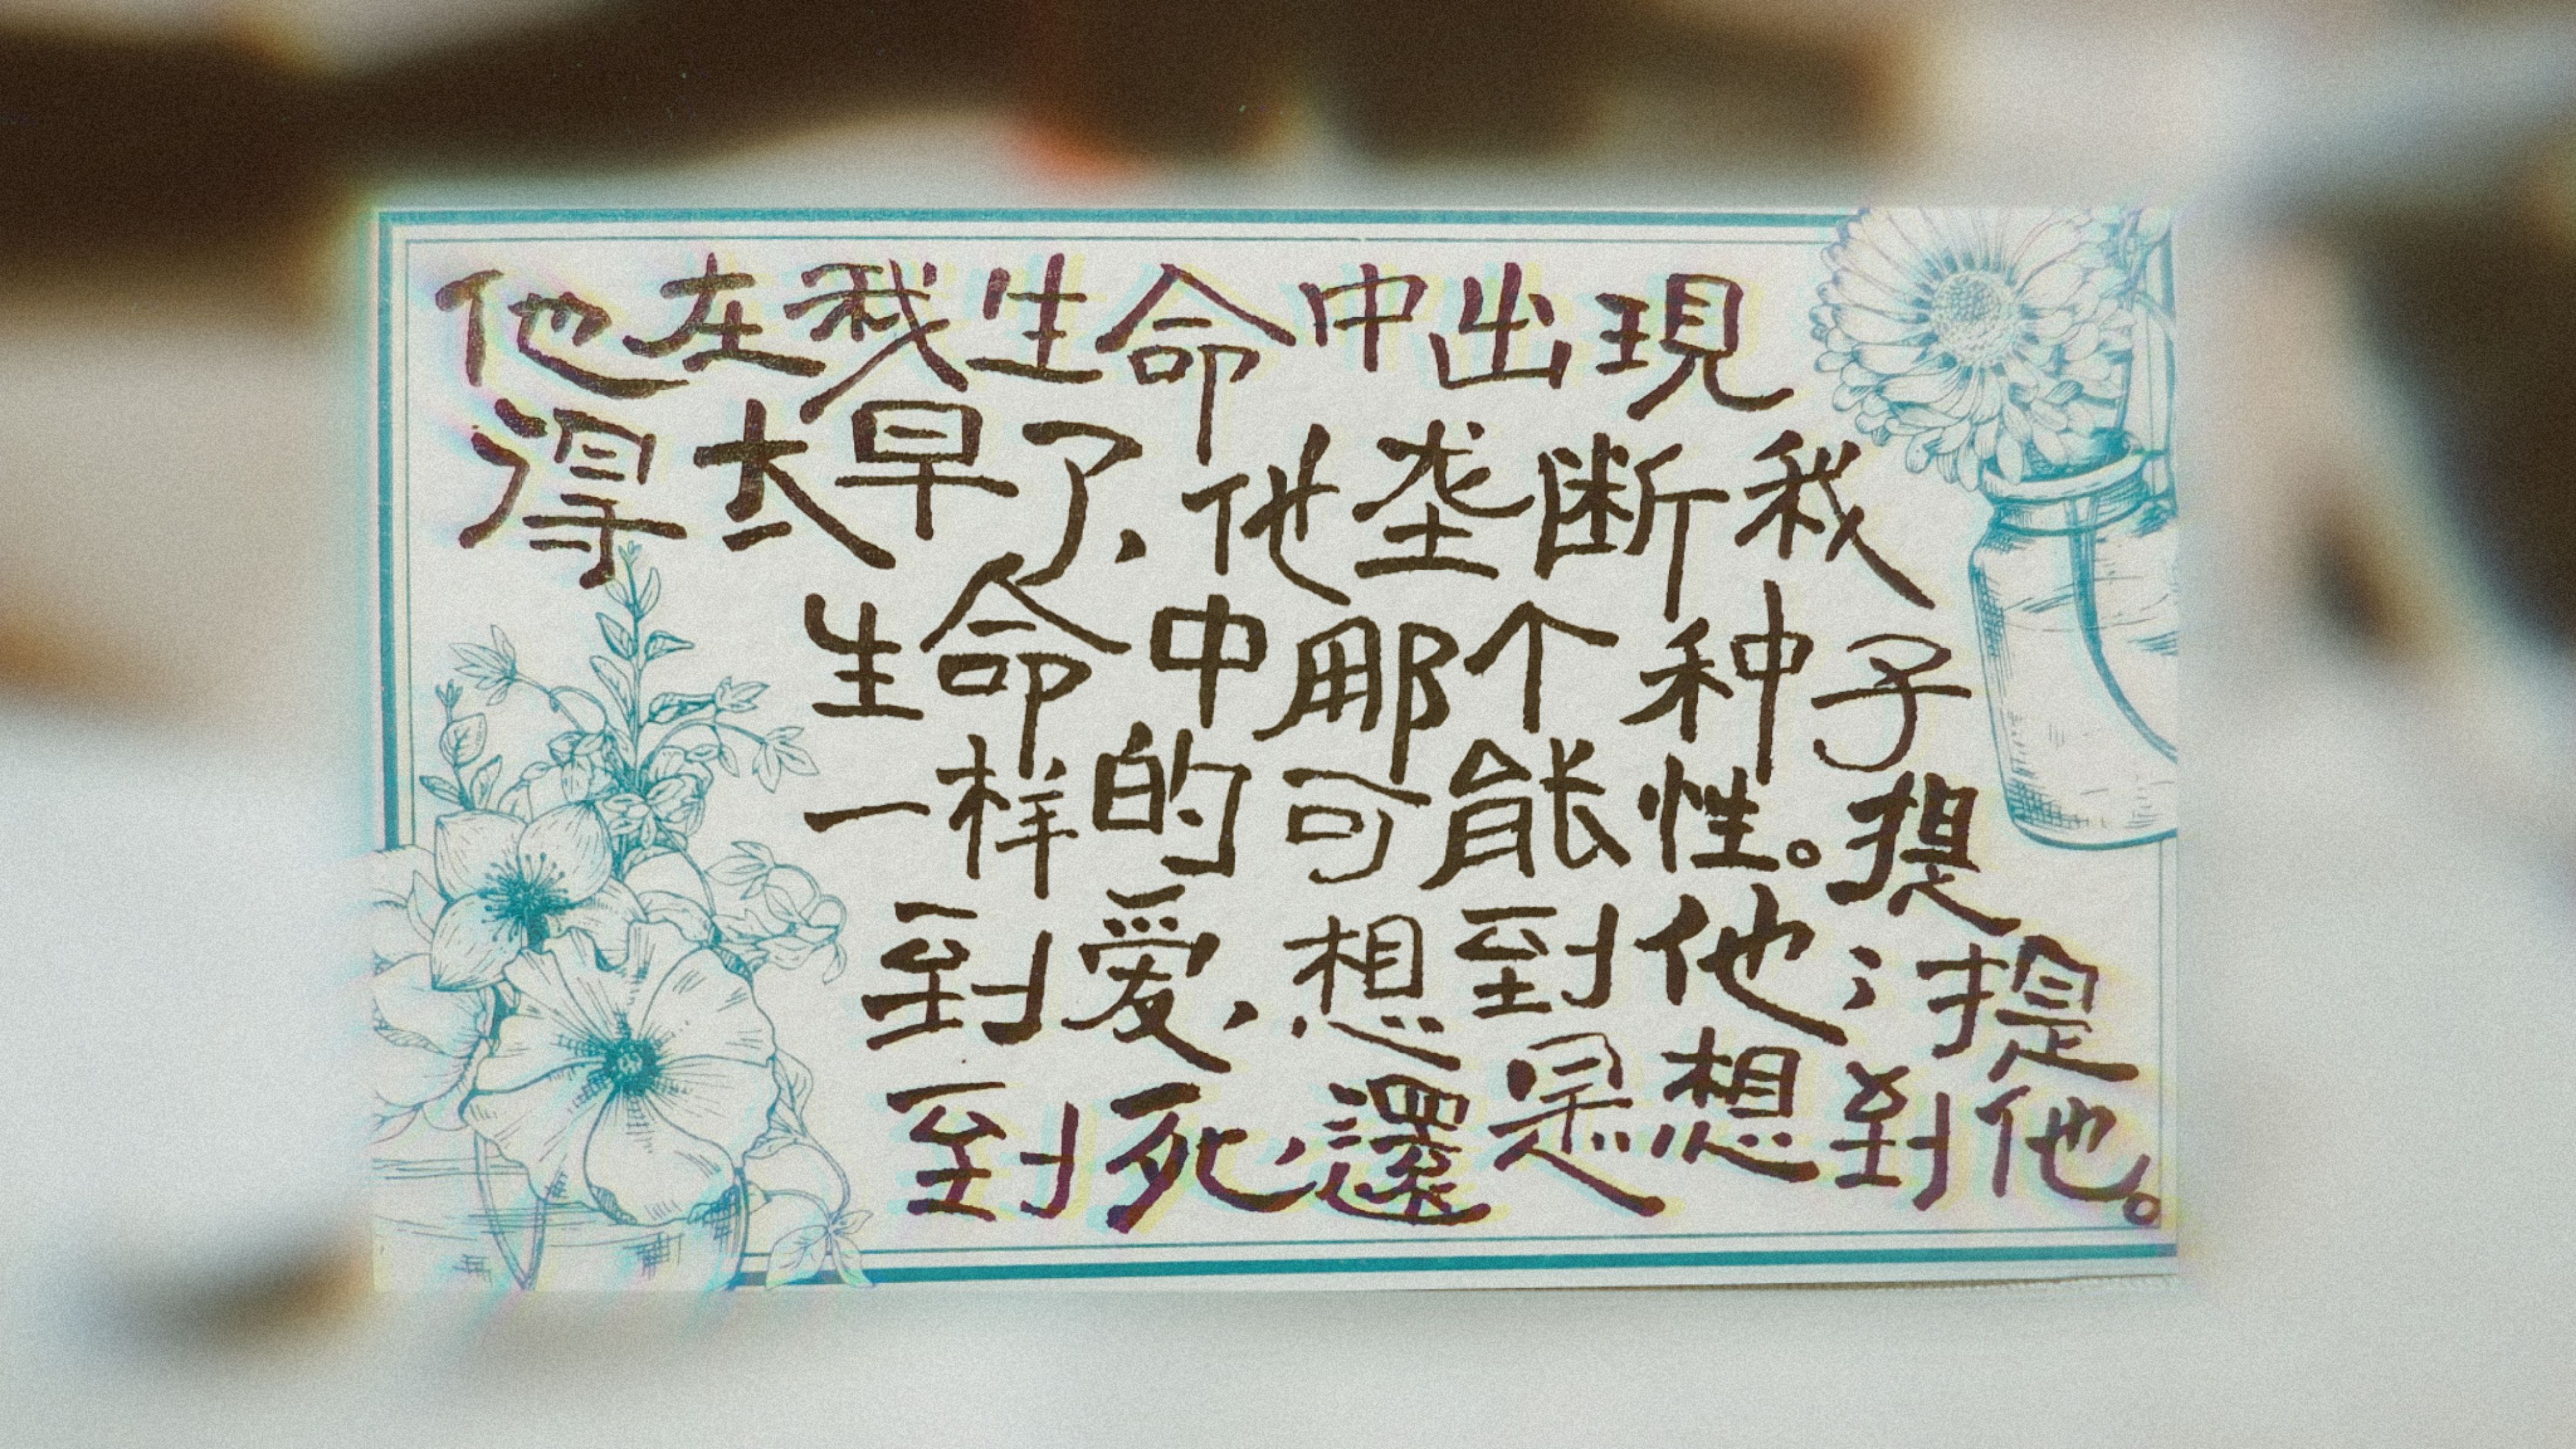 他在我生命中出現
得太早了、他垄断我
生命中那个种子
一样的可能性。提
到爱，想到他；提
到死，還是想到他。